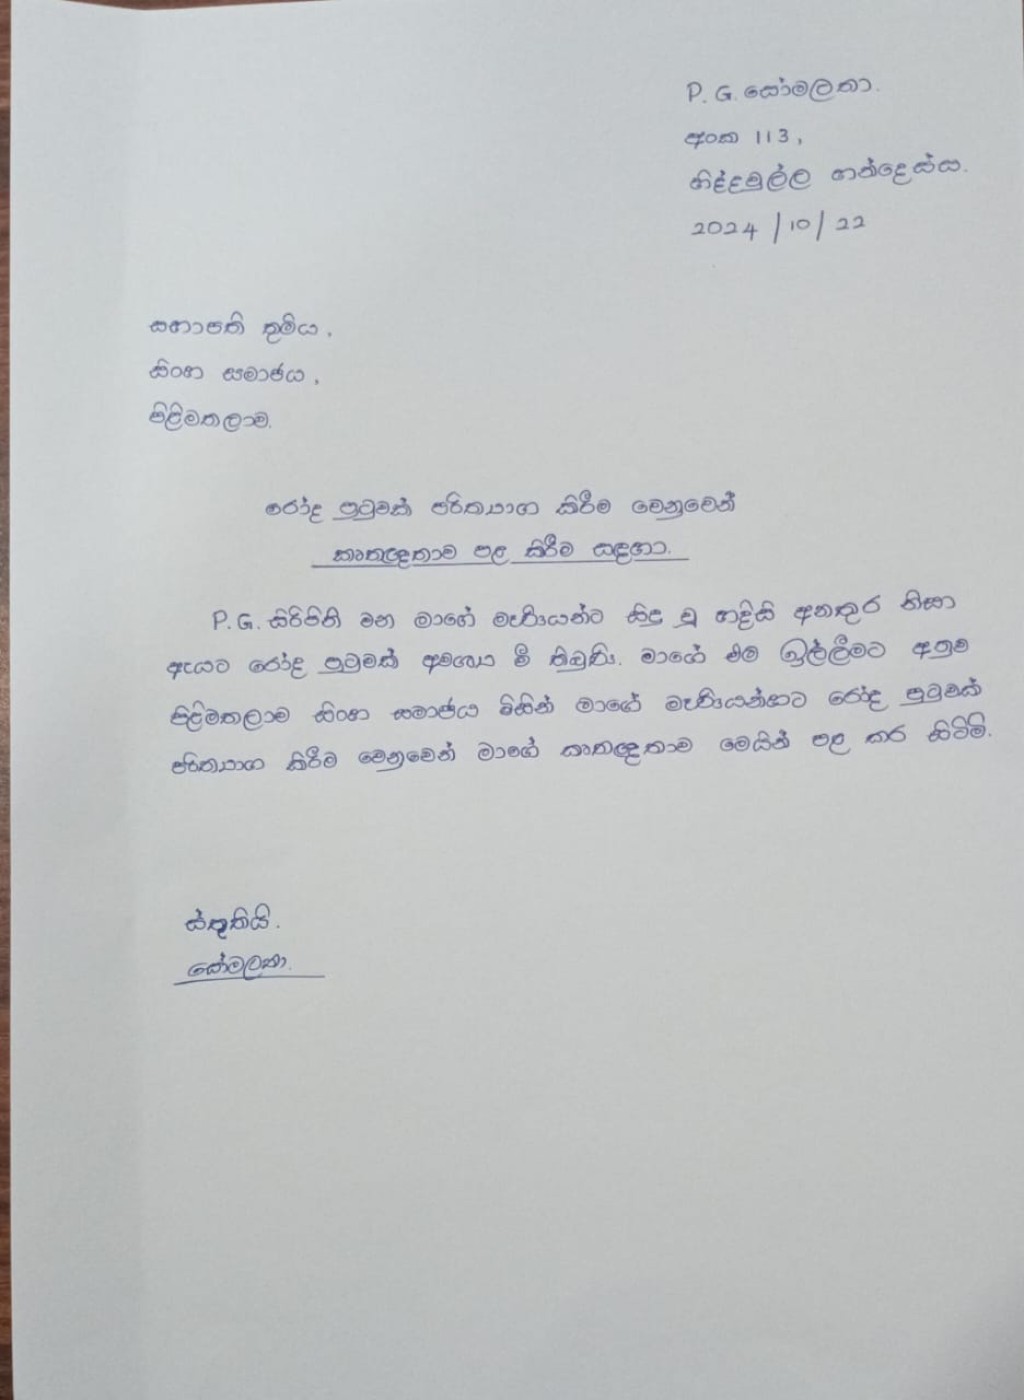 P. G. සෝමලතා.
අංක 113,
ගිද්දමුල්ල ගන්දෙස්ස.
2024 / 10 / 22
සභාපති තුමිය,
සිංහ සමාජය,
පිළිමතලාව.
රෝද පුටුවක් පරිත්‍යාග කිරීම වෙනුවෙන්
කෘතඥතාව පළ කිරීම සඳහා.
P. G. සිරිපිනි වන මාගේ මෑණියන්ට සිදු වූ හදිසි අනතුර නිසා
ඇයට රෝද පුටුවක් අවශ්‍ය වී තිබුණි. මාගේ එම ඉල්ලීමට අනුව
පිළිමතලාව සිංහ සමාජය විසින් මාගේ මෑණියන්හට රෝද පුටුවක්
පරිත්‍යාග කිරීම වෙනුවෙන් මාගේ කෘතඥතාව මෙයින් පළ කර සිටිමි.
ස්තූතියි.
සෝමලතා.